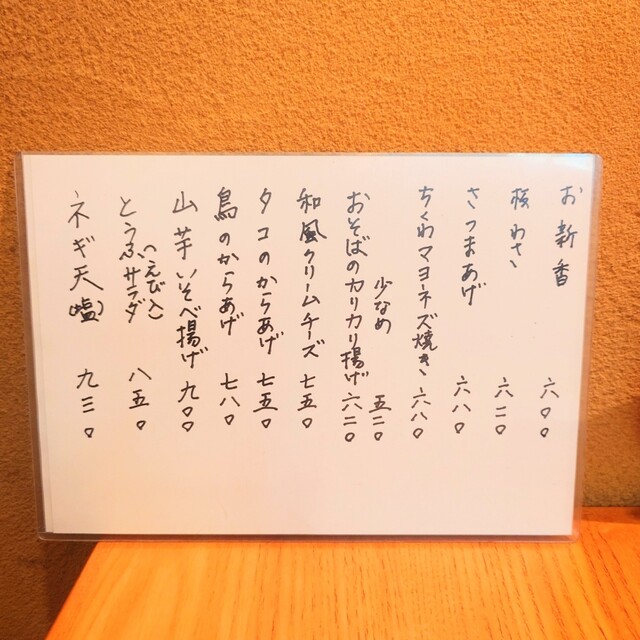 お新香 六〇〇
板わさ 六二〇
さつまあげ 六八〇
ちくわマヨネーズ焼き 六八〇
少なめ 五二〇
おそばのカリカリ揚げ 六二〇
和風クリームチーズ 七五〇
タコのからあげ 七五〇
鳥のからあげ 七八〇
山芋いそべ揚げ 九〇〇
(えび入)
とうふサラダ 八五〇
ネギ天(塩) 九三〇